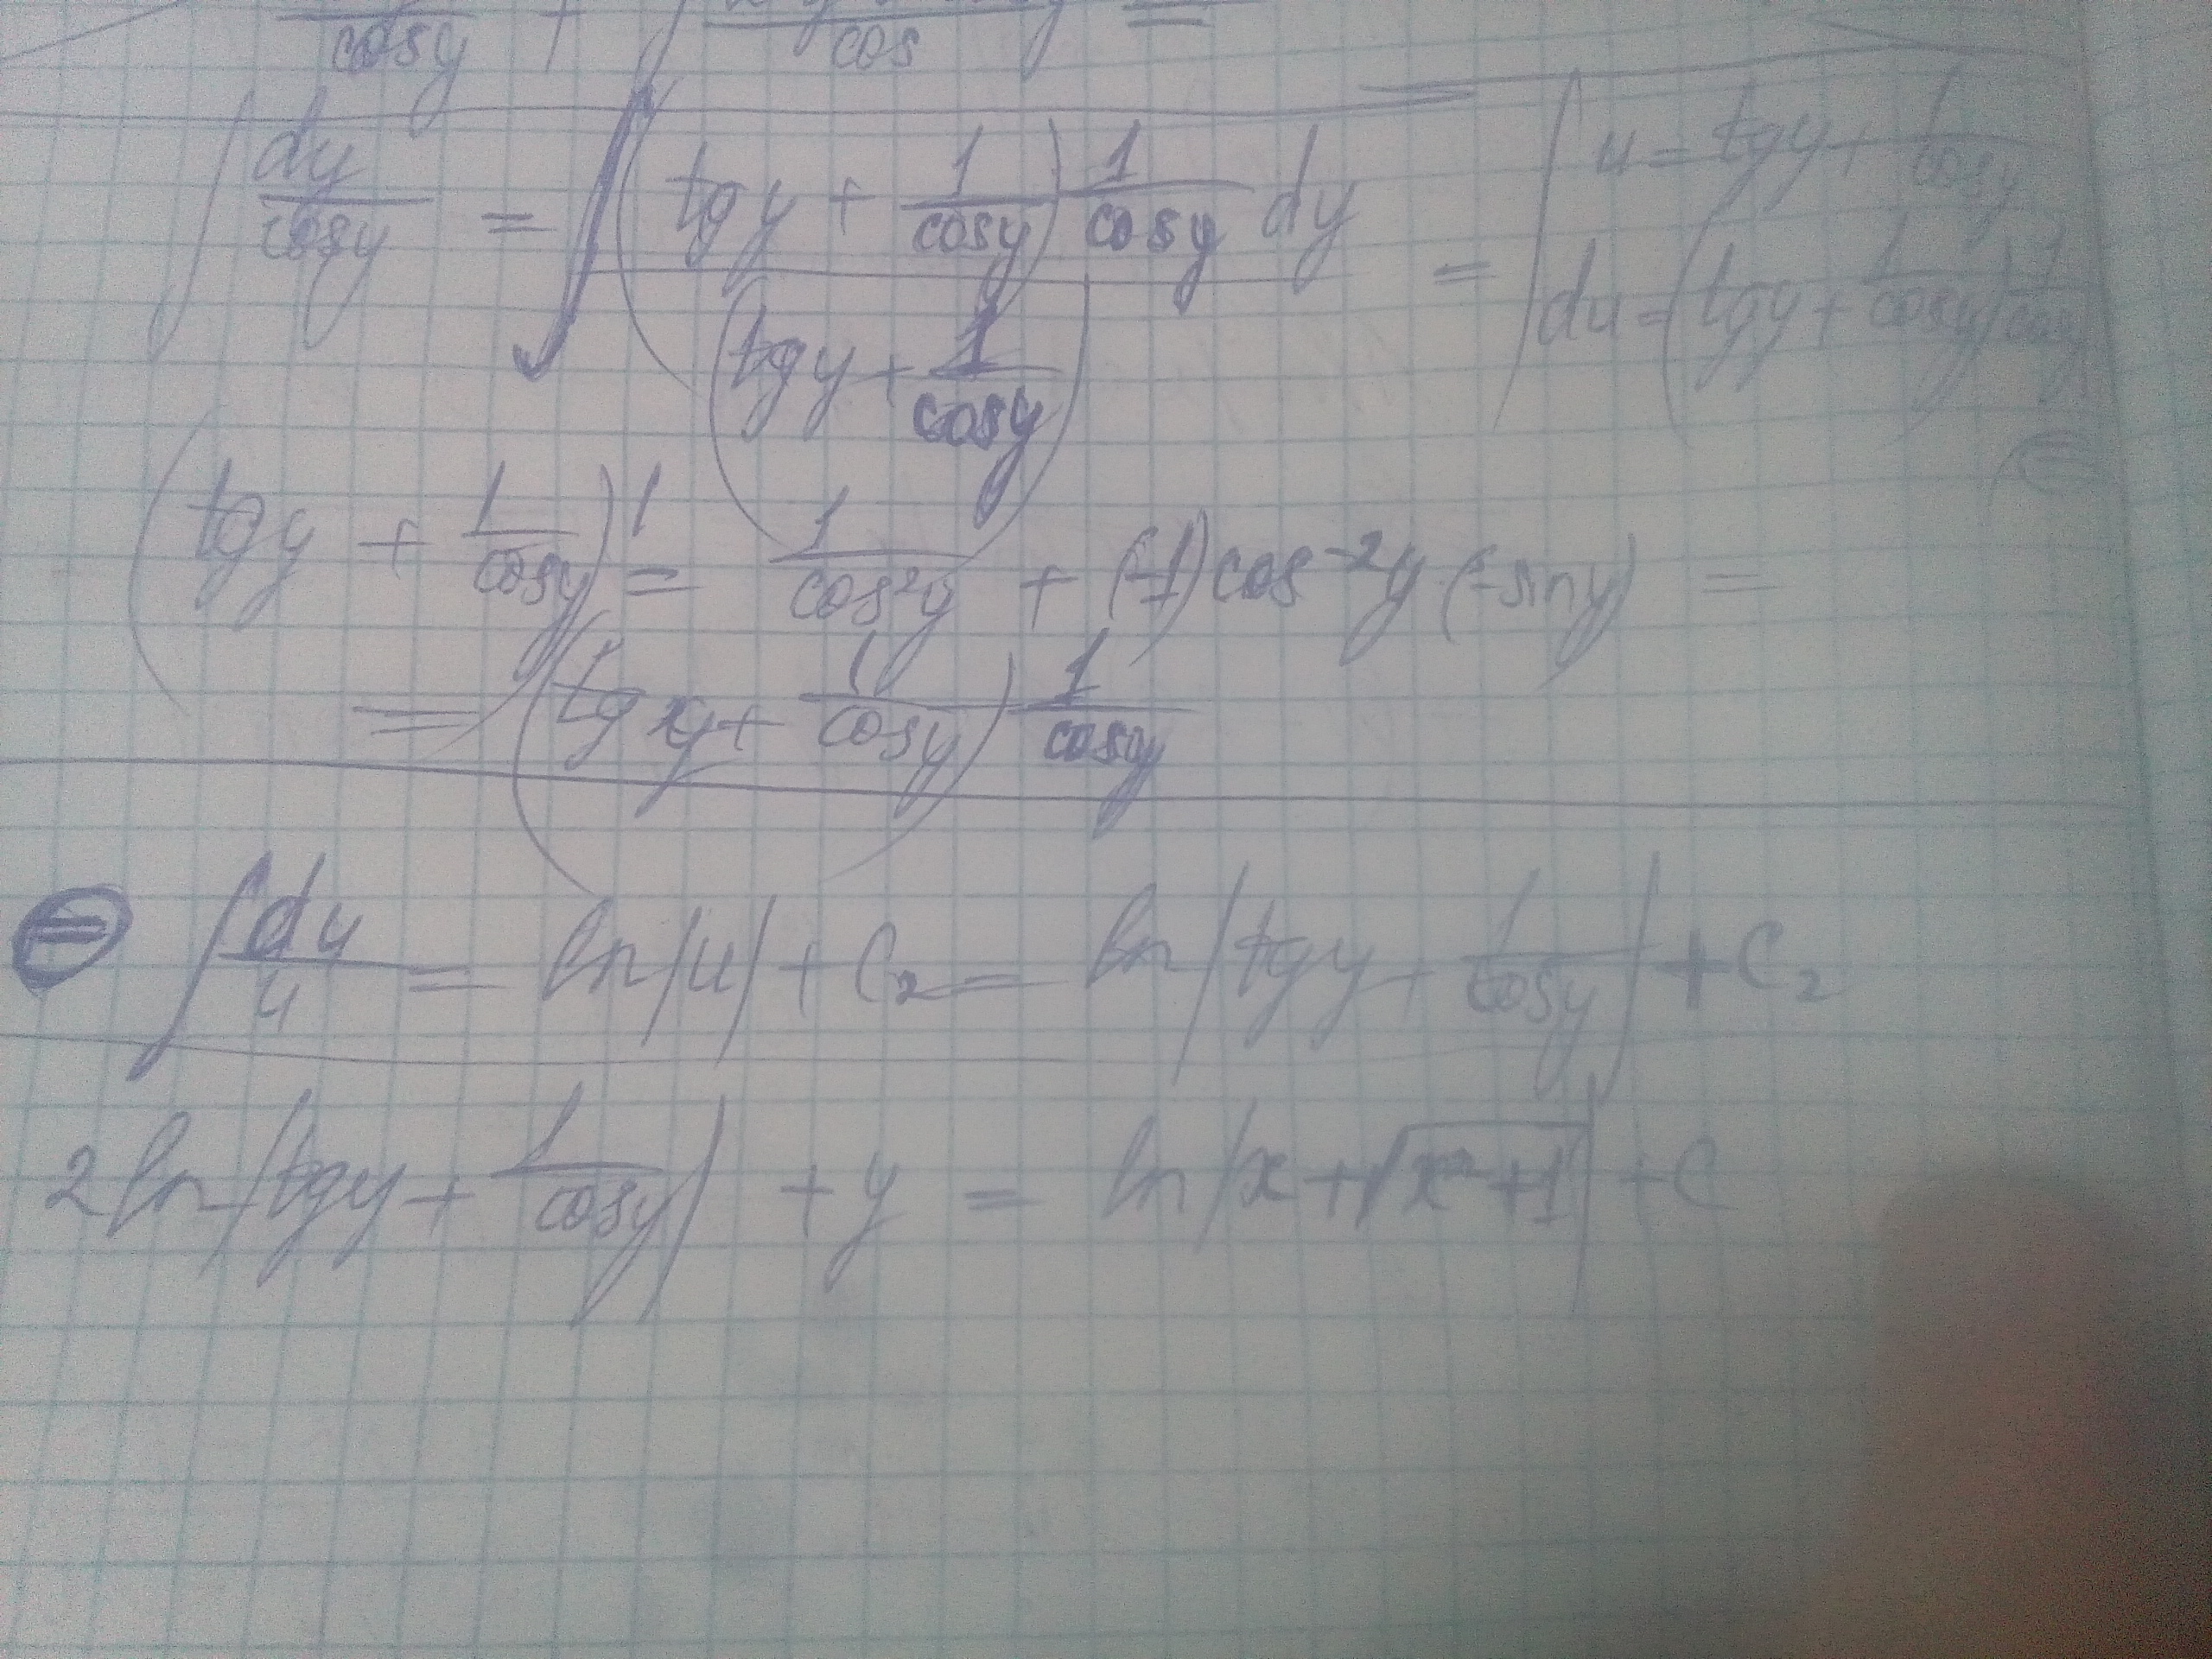 cosy + cos =
∫ dy/cosy = ∫ (tgy + 1/cosy) 1/cosy dy / (tgy + 1/cosy) = | u = tgy + 1/cosy
du = (tgy + 1/cosy) 1/cosy
(tgy + 1/cosy)' = 1/cos²y + (-1)cos⁻²y·(-siny) =
= (tgy + 1/cosy) 1/cosy
⊜ ∫ du/u = ln|u| + C₂ = ln|tgy + 1/cosy| + C₂
2ln|tgy + 1/cosy| + y = ln|x + √x²+1| + C